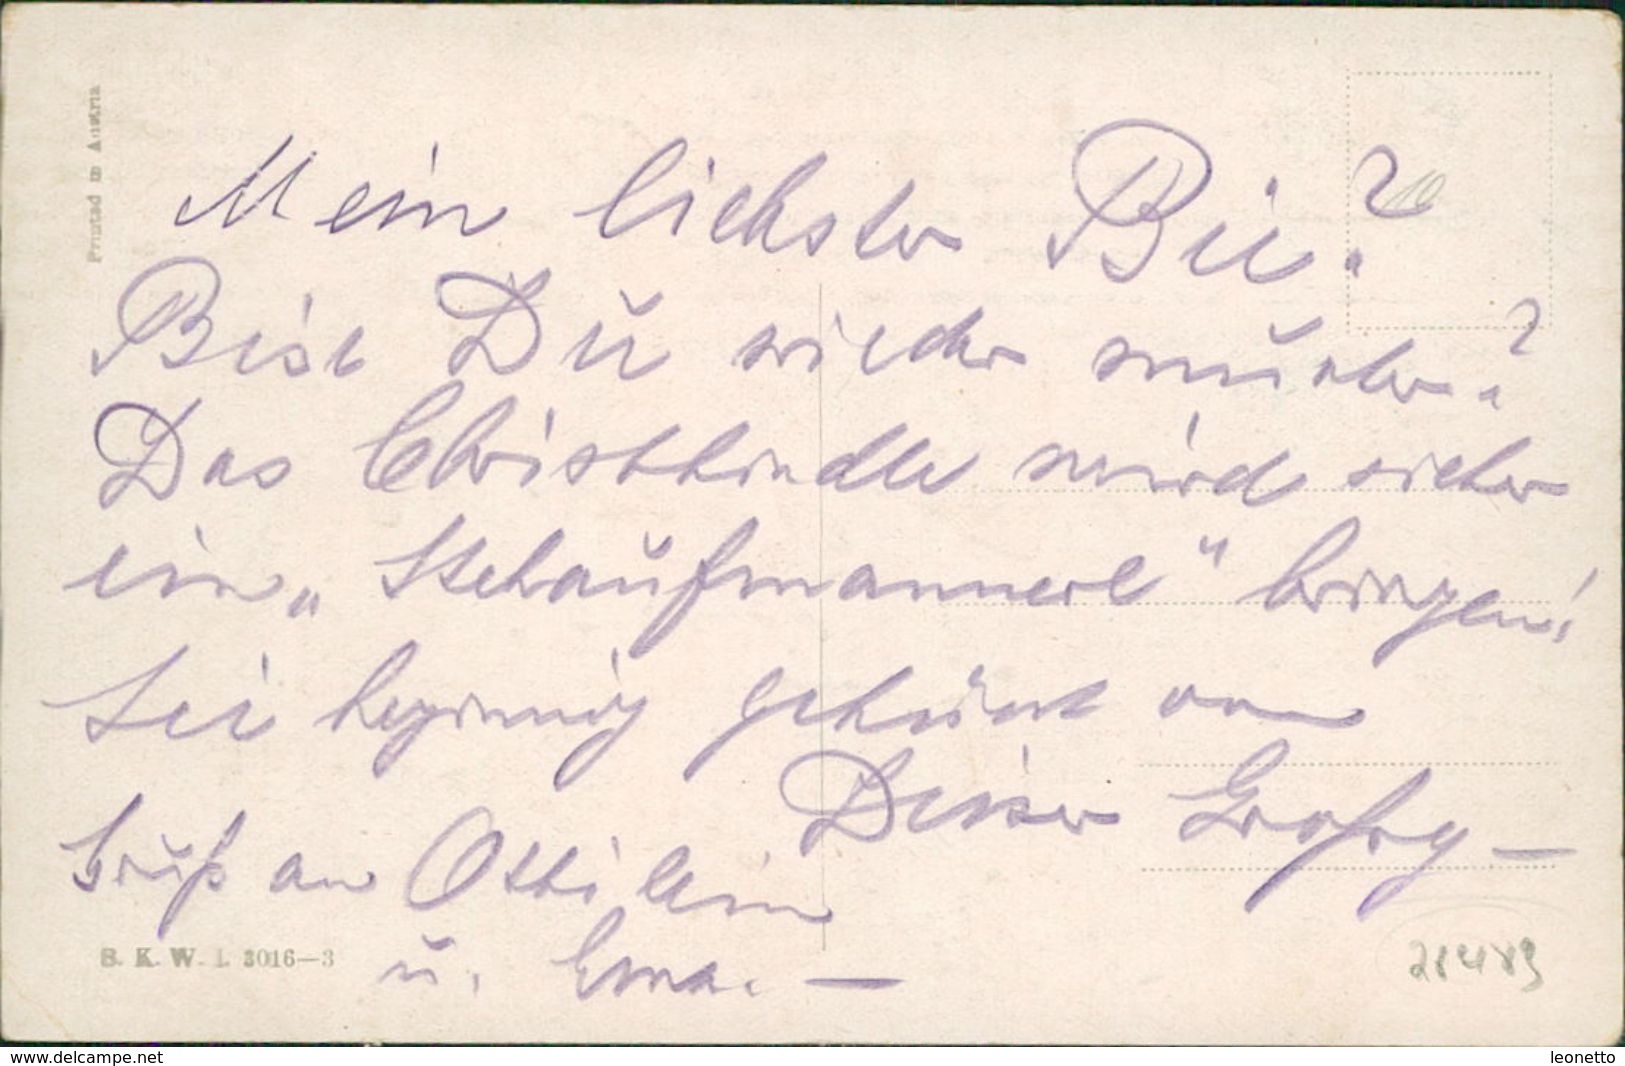 Printed in Austria
Mein liebster Bü?
Bist Du wieder munter?
Das Christkindle wird sicher
ein „Stehaufmannerl" bringen!
Sei herzinnig geküsst von
Deiner Großy —
Gruß an Ottilein
u. Erna. —
B. K. W. I. 3016—3
21489
www.delcampe.net
leonetto